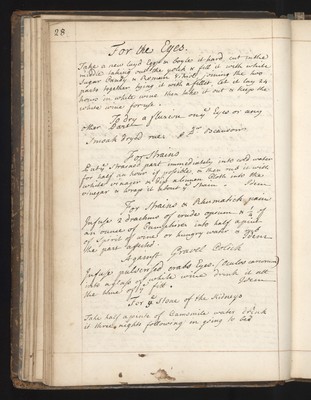 28
For the Eyes.
Take a new layd Egg & boyle it hard, cut in the
middle taking out the yolck & fill it with white
Sugar Candy & Romain Vitriol joining the two
parts together tying it with a fillet let it lay 24
hours in white wine then take it out & keep the
white wine for use.
To dry a fluxion on ye Eyes or any
other Part
Smoak dryed
For Strains
Put ye strained part immediately into cold water
for half an hour if possible, & then rub it with
white vinegar & dip a linnen Cloth into the
vinegar & wrap it about ye Strain. Idem
For Strains & Rhumatick pain
Infuse 2 drachms of crude opium & ½ of
an ounce of Camphire into half a pint
of Spirit of wine or hungry water &
the part affected. Idem
Against Gravel Colick
Infuse pulverised crabs Eyes (Oculos cancrorum)
into a glass of white wine drink it att
the time of ye fitt. Idem
For ye Stone of the Kidneys
Take half a pinte of Camomile water drink
it three nights following in going to bed